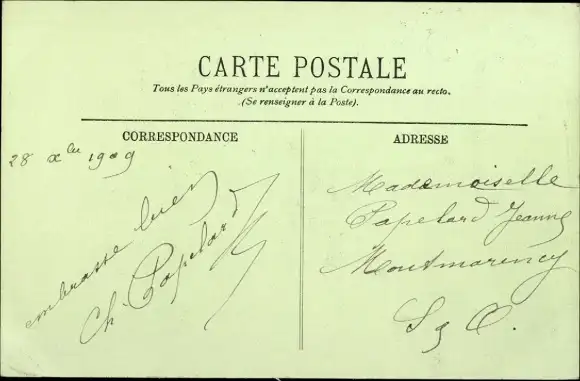 CARTE POSTALE
Tous les Pays étrangers n'acceptent pas la Correspondance au recto.
(Se renseigner à la Poste).
CORRESPONDANCE
28 Xbre 1909
embrasse bien
Ch Papelard
ADRESSE
Mademoiselle
Papelard Jeanne
Montmorency
S & O.